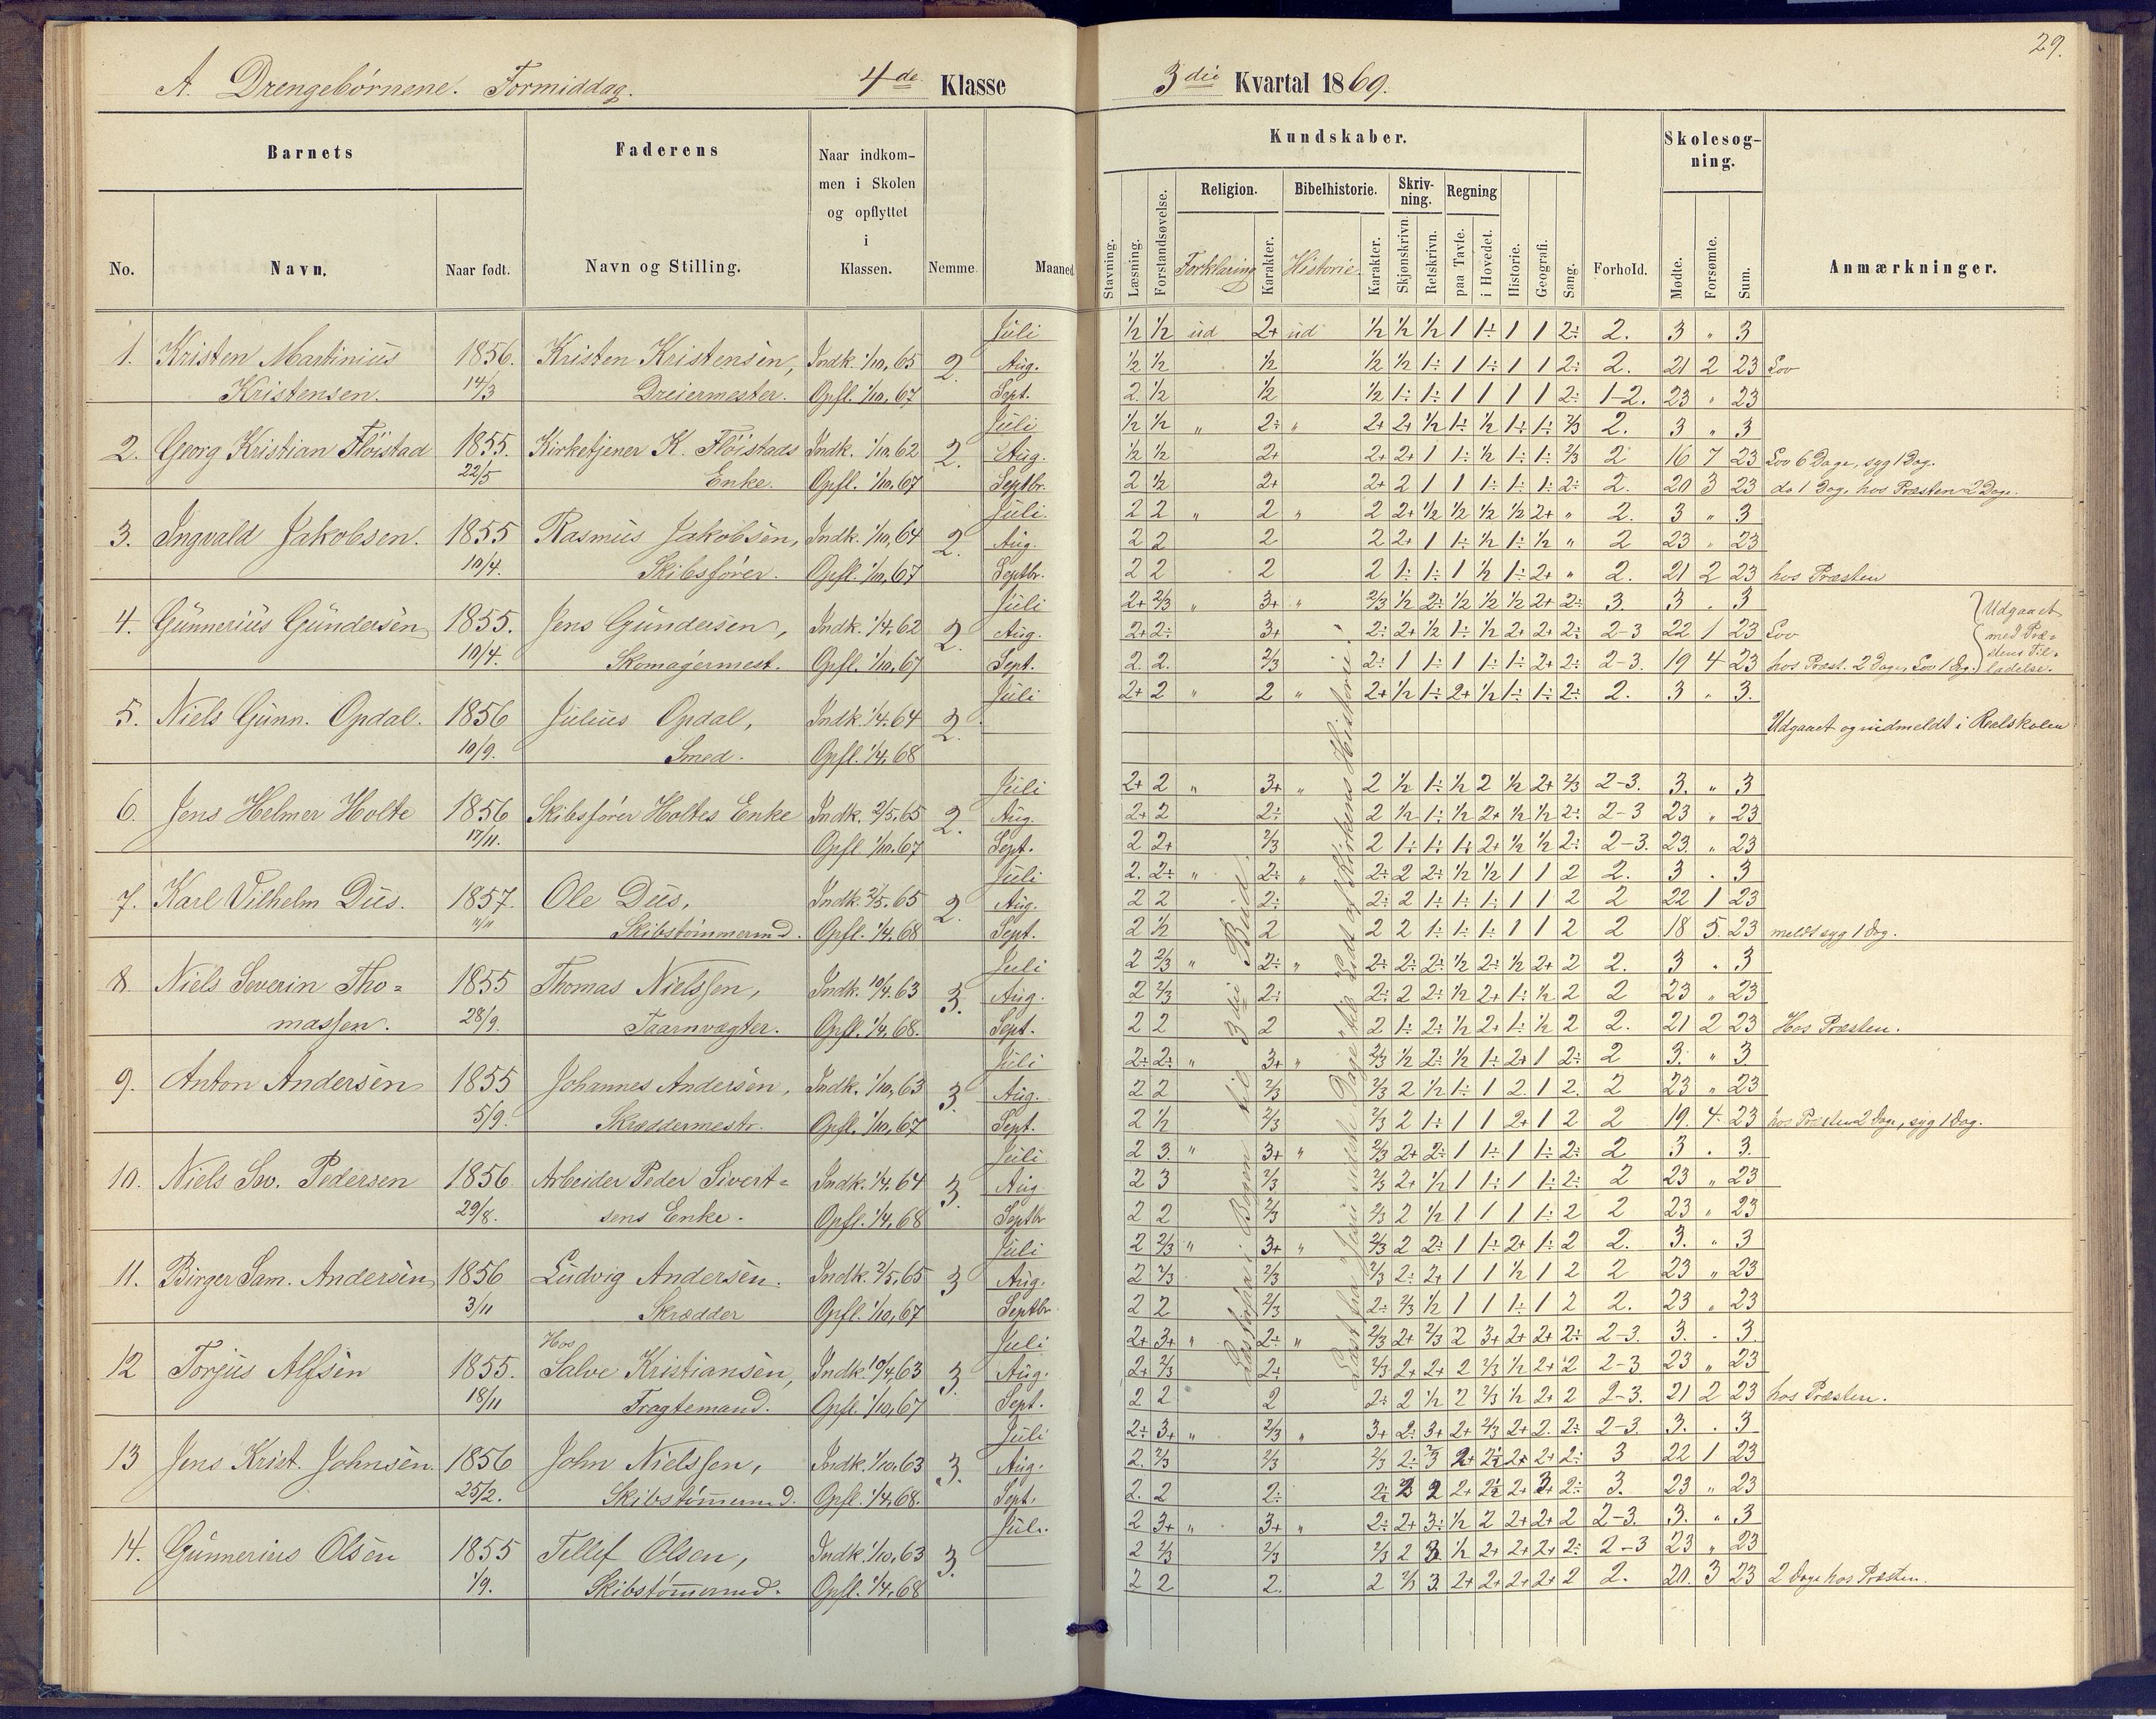 29.
A. Drengebørnene. Formiddag. 4de Klasse
3die Kvartal 1869.
Barnets
Faderens
Naar indkom-
men i Skolen
og opflyttet
i
Klassen.
No.
Navn.
Naar født.
Navn og Stilling.
Nemme.
Maaned
Kundskaber.
Skolesøg-
ning.
Religion.
Bibelhistorie.
Skriv-
ning.
Regning
Stavning.
Læsning.
Forstandsøvelse.
Forklaring
Karakter.
Historie.
Karakter.
Skjønskrivn.
Retskrivn.
paa Tavle.
i Hovedet.
Historie.
Geografi.
Sang.
Forhold.
Mødte.
Forsømte.
Sum.
Anmærkninger.
Juli ½ ½ ud 2+ ud ½ ½ ½ 1 1÷ 1 1 2÷ 2. 3 " 3
1. Kristen Martinius 1856. Kristen Kristensen, Indk. 1/10, 65 2. Aug. ½ ½ ½ ½ ½ 1÷ 1 1÷ 1 1 2÷ 2. 21 2 23 Lov
Kristensen. 14/3 Dreiermester. Opfl. 1/10, 67 Sept. 2. ½ ½ ½ 1÷ 1÷ 1 1 1 1 2÷ 1-2. 23 " 23
Juli ½ ½ " 2÷ " 2+ 2+ ½ 1÷ ½ 1÷ 1÷ 2/3 2. 3 " 3
2. Georg Kristian Fløistad 1855. Kirketjener K. Fløistads Indk. 1/10, 62 2. Aug. ½ ½ 2+ 2+ 2+ 1 1÷ ½ 1÷ 1÷ 2/3 2 16 7 23 Lov 6 Dage, syg 1 Dag.
22/5 Enke. Opfl. 1/10, 67 Septbr. 2 ½ 2+ 2+ 2 1 1 1÷ 1÷ 1÷ 2÷ 2. 20 3 23 do 1 Dag, hos Præsten 2 Dage.
Juli. 2 2 " 2 " 2 2+ ½ ½ ½ ½ 2+ " 2. 3 " 3
3. Ingvald Jakobsen. 1855 Rasmus Jakobsen, Indk. 1/10, 64 2. Aug. 2 2 2 2 2+ 1 1÷ ½ 1÷ ½ " 2 23 " 23
10/4. Skibsfører. Opfl. 1/10, 67 Septbr. 2 2 2 2 1÷ 1÷ 1 ½ 1÷ 2+ " 2. 21 2 23 hos Præsten
Juli 2+ 2/3 " 3+ " 2/3 ½ 2÷ ½ ½ ½ 2+ 2÷ 3. 3 . 3
4. Gunnerius Gundersen 1855. Jens Gundersen, Indk. 1/4, 62 2. Aug. 2+ 2÷ 3+ 2÷ 2+ ½ 1÷ ½ 2+ 2+ 2÷ 2-3 22 1 23 Lov
10/4. Skomagermest. Opfl. 1/10, 67 Sept. 2. 2. 2/3 2÷ 1 1÷ 1 1÷ 1÷ 2+ 2÷ 2-3. 19 4 23 hos Præst. 2 Dage, Lov 1 Dag.
Udgaaet
med Præ-
stens Til-
ladelse.
Juli 2+ 2 " 2 " 2+ ½ 1÷ 2+ ½ 1÷ 1÷ 2÷ 2. 3 . 3.
5. Niels Gunn. Opdal. 1856 Julius Opdal, Indk. 1/4, 64 2. Udgaaet og indmeldt i Realskolen
10/9. Smed. Opfl. 1/4, 68
Juli 2+ 2 " 3+ " 2 ½ 1÷ ½ 2 ½ 2+ 2/3 2-3. 3. " 3
6. Jens Helmer Holte 1856 Skibsfører Holtes Enke Indk. 2/5, 65 2. Aug. 2+ 2 2÷ 2 ½ 1÷ ½ 2+ ½ ½ 2÷ 2-3 23 " 23
17/11. Opfl. 1/10, 67 Sept. 2 2+ 2/3 2 1÷ 1÷ 1÷ 2+ ½ ½ 2÷ 2-3. 23. " 23
Juli 2. 2÷ " 2÷ " 2÷ 2 2÷ ½ ½ 1 1 2 2. 3 . 3
7. Karl Vilhelm Dus. 1857. Ole Dus, Indk. 2/5, 65 2. Aug. 2 2 2÷ 2÷ 2 1÷ 1÷ 1÷ 1 1 2 2 22 1 23
11/11 Skibstømmermd. Opfl. 1/4, 68 Sept. 2 ½ 2 2 2 1÷ 1÷ 1÷ 1 1 2 2 18 5. 23 meldt syg 1 Dag.
Juli 2 2/3 " 2÷ " 2÷ 2÷ 2÷ ½ 2÷ ½ 2+ 2 2. 3 . 3
8. Niels Severin Tho- 1855 Thomas Nielssen, Indk. 10/4, 63 3. Aug. 2 2/3 2÷ 2÷ 2 2÷ ½ 2+ 1÷ ½ 2 2 23 " 23
massen. 28/9. Taarnvægter. Opfl. 1/4, 68. Sept. 2 2 2 2 1÷ 2÷ ½ 2+ 1÷ ½ 2 2. 21 2 23 Hos Præsten.
Juli 2÷ 2÷ " 3+ " 2/3 ½ 2÷ ½ 1÷ 2+ 1 2÷ 2 3. " 3
9. Anton Andersen 1855 Johannes Andersen, Indk. 1/10, 63 3. Aug. 2 2 2/3 2/3 2 ½ 1÷ 1 2. 1 2. 2 23 " 23
5/9. Skræddermestr. Opfl. 1/10, 67 Sept. 2 ½ 2/3 2/3 2 1÷ 1 1 2+ 1 2 2 19. 4. 23 hos Præsten 2 Dage, syg 1 Dag.
Juli 2 3. " 3+ " 2/3 2+ 2÷ 1 1÷ 1 1÷ 2÷ 2 3 . 3.
10. Niels Sev. Pedersen 1856 Arbeider Peder Sivert- Indk. 1/4, 64 3. Aug. 2 3 2/3 2/3 2+ ½ 1 1÷ 1 1÷ 2÷ 2 23 " 23
29/8. sens Enke. Opfl. 1/4, 68 Septbr 2 2 2/3 2/3 2 ½ 1 1 1 1÷ 2 2 23 " 23
Juli 2 2/3 " 3+ " 2/3 2 2÷ 1 1÷ 2+ 1÷ 2 2. 3. " 3
11. Birger Sam. Andersen 1856 Ludvig Andersen. Indk. 2/5, 65 3 Aug. 2 2/3 2/3 2/3 2÷ 2+ 1 1 ½ 1 2 2 23 " 23
3/11 Skrædder Opfl. 1/10, 67 Septbr. 2 2 2/3 2÷ 2/3 ½ 1 1 1÷ 1 2 2. 23 " 23
Hos Juli 2+ 3+ " 2÷ " 2/3 2+ 2/3 2 3+ 2+ 2+ 2÷ 2-3. 3. . 3.
12 Torjus Alfsen 1855. Salve Kristiansen, Indk. 10/4, 63 3. Aug. 2+ 2/3 2÷ 2/3 2+ 2+ 2 2/3 ½ 2+ 2 2-3 23 " 23
18/11 Fragtemand. Opfl. 1/10, 67 Sept. 2 2 2 2÷ 2 ½ 2 2/3 ½ 2+ 2 2-3. 21 2 23 hos Præsten.
Juli 2÷ 3+ " 2/3 " 3+ 2÷ 3+ 2+ 2/3 2+ 2. 2÷ 2-3. 3. . 3
13 Jens Krist. Johnsen. 1856 John Nielssen, Indk. 1/10, 63 3. Aug. 2. 2/3 2/3 2/3 2÷ 2+ 2+ 2+ 2÷ 3 22 1 23
25/2. Skibstømmermd. Opfl. 1/4, 68. Sept. 2. 2 2÷ 2 2+ 2+ 2÷ 3. 23 " 23
Juli. 2 3+ " 3+ " 2÷ 2+ 3÷ ½ 2 2+ 2+ 2 2-3. 3. " 3
14. Gunnerius Olsen 1855 Tellef Olsen, Indk. 1/10, 63 3. 2 2/3 2/3 2/3 2 3 ½ 2+ 2+ 2+ 2÷ 2-3 23 " 23
1/9. Skibstømmermd. Opfl. 1/4, 68 2 2 2. 2 2/3 3. 2+ 2+ 2+ 2+ 2 2. 20. 3 23 2 Dage hos Præsten.
Læst forfra i Bogen til 3die Bud.
Læst fra Jesu sidste Dage til Lidt af Kirkens Historie.